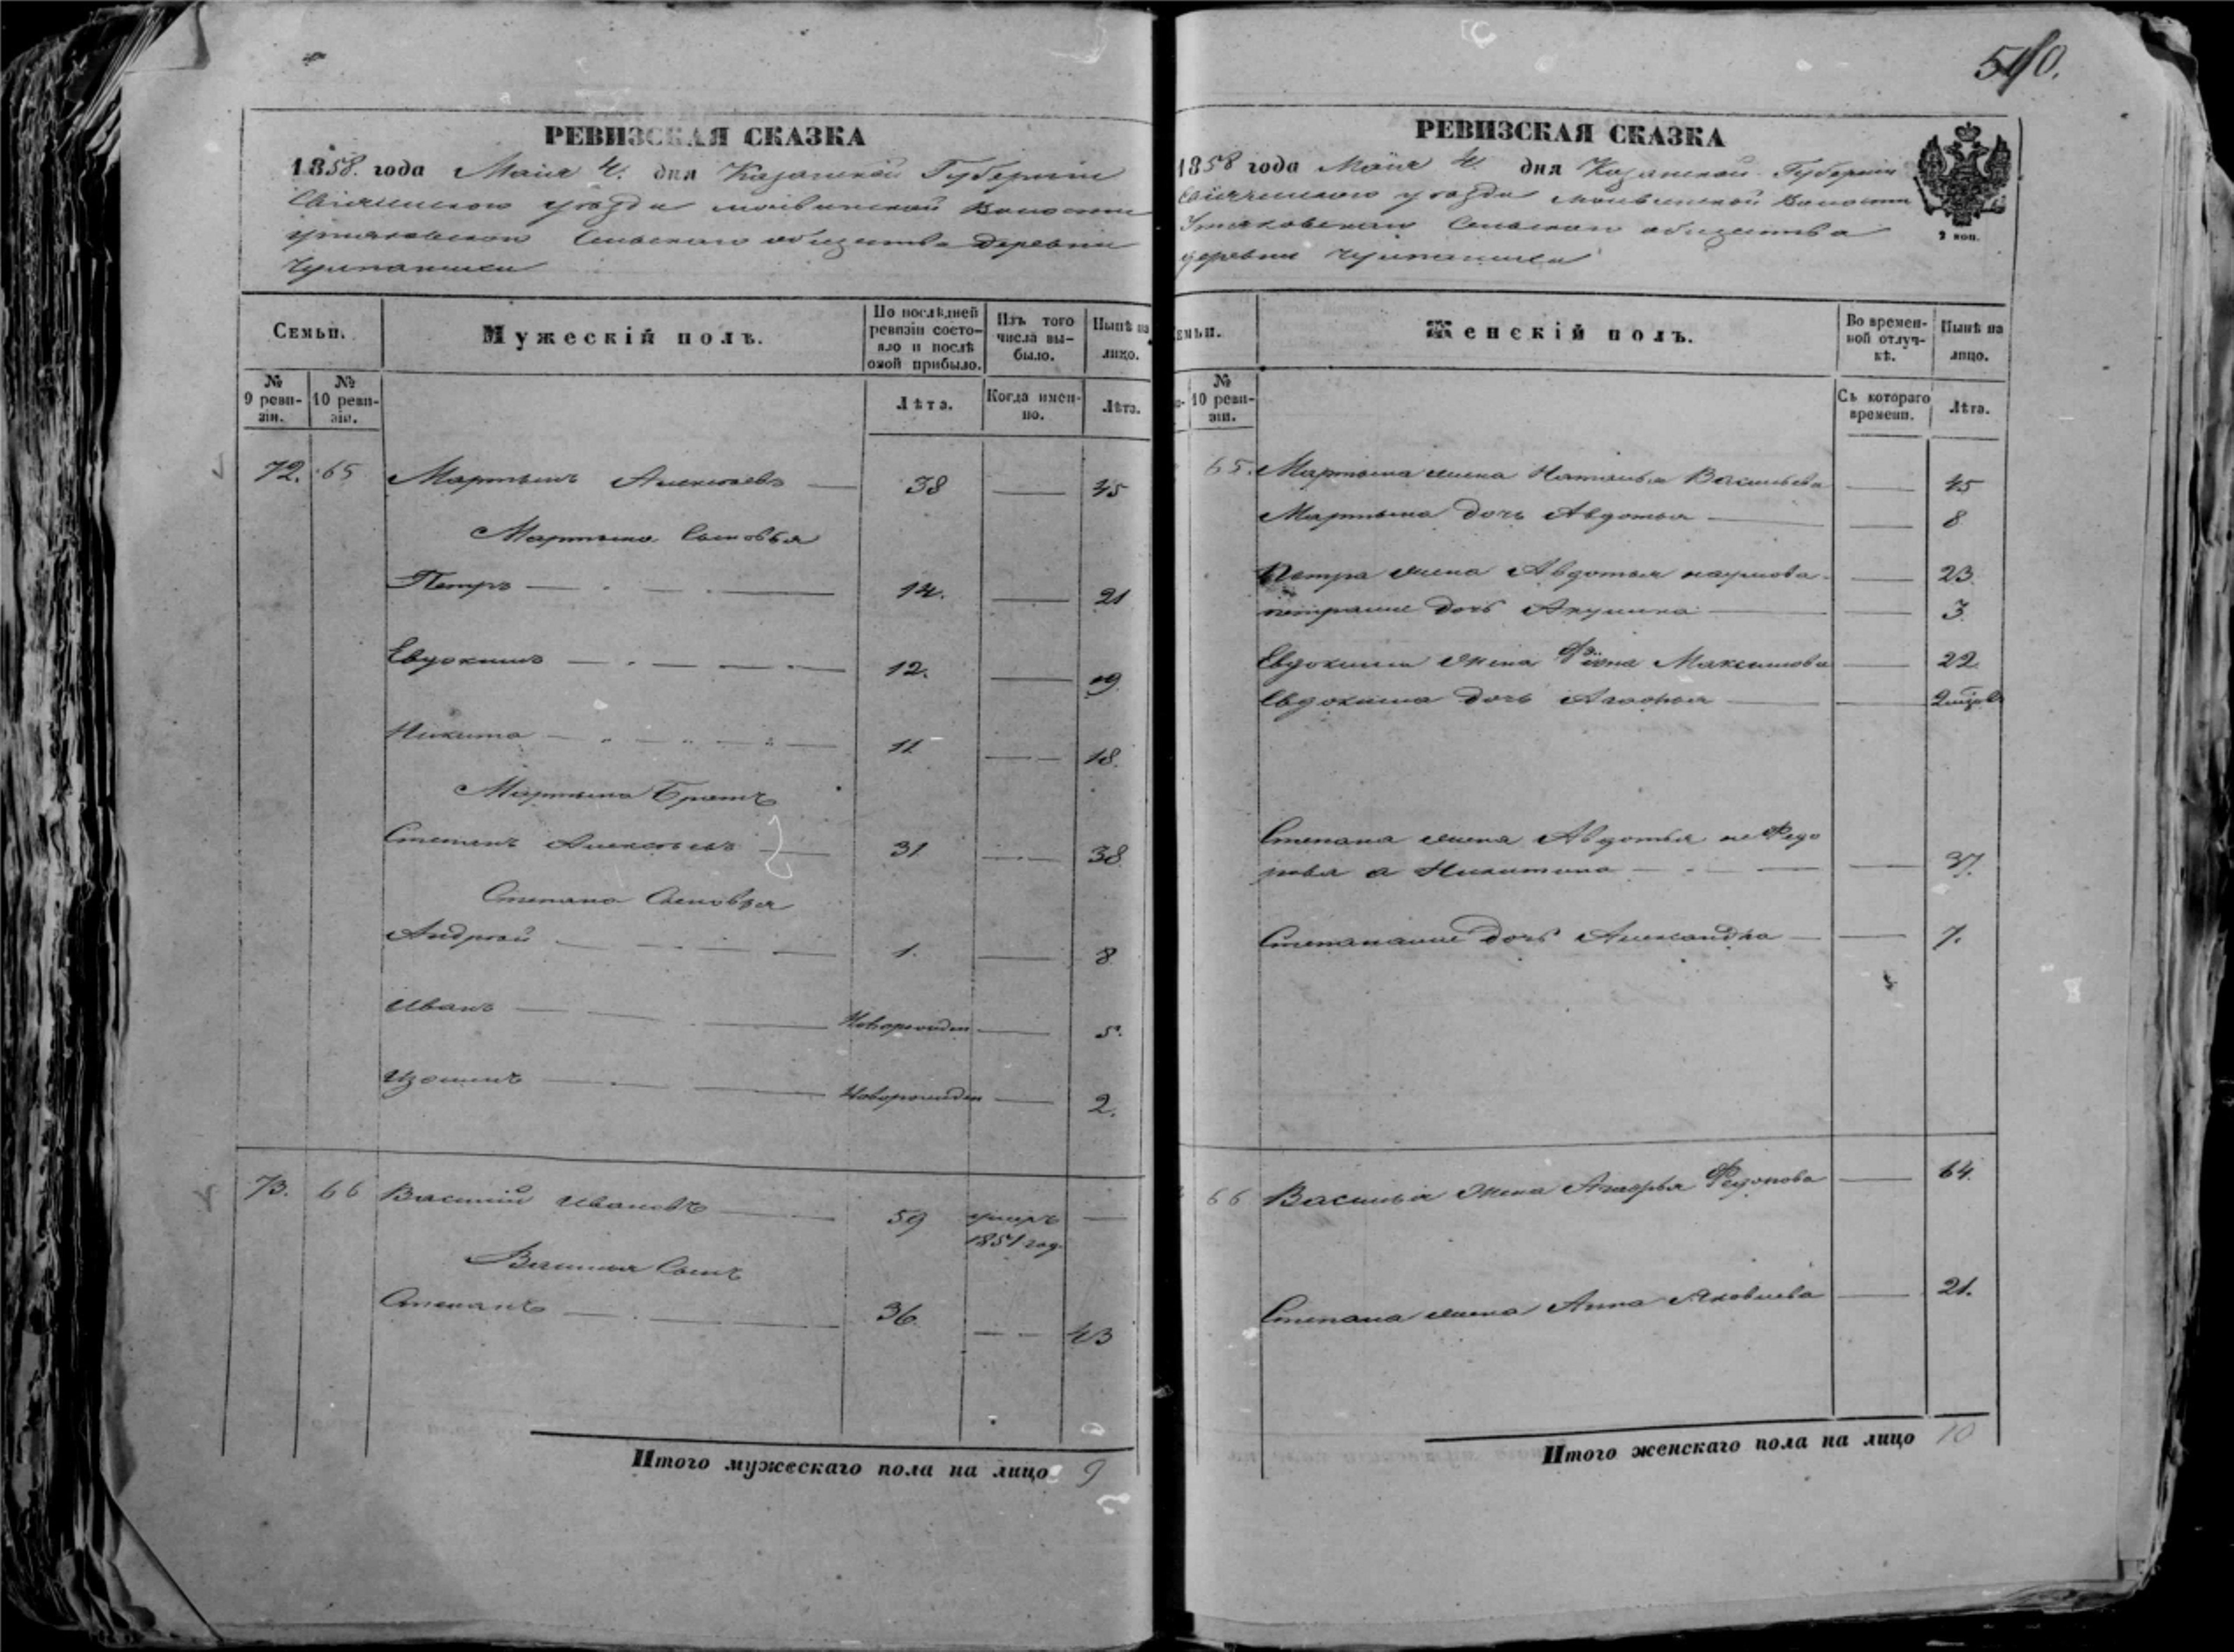 540.
РЕВИЗСКАЯ СКАЗКА
1858. года Маія 4. дня Казанской Губерніи
Свіяжскаго уѣзда Волости
Сельскаго общества деревни
Семьи.
Мужескій полъ.
По послѣдней ревизіи состояло и послѣ оной прибыло.
Изъ того числа выбыло.
Нынѣ на лицо.
№ 9 ревизіи.
№ 10 ревизіи.
Лѣта.
Когда именно.
Лѣта.
72. 65 Мартынъ Алексѣевъ — 38 — 45
Мартына Сыновья
Петръ — 14. — 21
Евдокимъ — 12. — 19.
Никита — 11 — 18.
Мартына Братъ
Степанъ Алексѣевъ — 31 — 38
Степана Сыновья
Андрей — 1. — 8
Иванъ — Новорожден — 5.
Изотъ — Новорожден — 2.
73. 66 Василій Ивановъ — 59 умеръ —
1851 год.
Василья Сынъ
Степанъ — 36. — 43
Итого мужескаго пола на лицо 9
РЕВИЗСКАЯ СКАЗКА
1858 года Маія 4. дня Казанской Губерніи
Свіяжскаго уѣзда Волости
Сельскаго общества
деревни
2 коп.
Семьи.
Женскій полъ.
Во временной отлучкѣ.
Нынѣ на лицо.
№ 10 ревизіи.
Съ котораго времени.
Лѣта.
65. Мартына жена Наталья Васильева — 45
Мартына дочь Авдотья — 8
Петра жена Авдотья наумова — 23.
дочь Акулина — 3
Евдокима жена Максимова — 22.
Евдокима дочь Агафья —
Степана жена Авдотья не Федо
рова а Никитина — 37.
дочь Александра — 7.
66 Василья жена Агафья Федорова — 64.
Степана жена Анна Яковлева — 21.
Итого женскаго пола на лицо 10